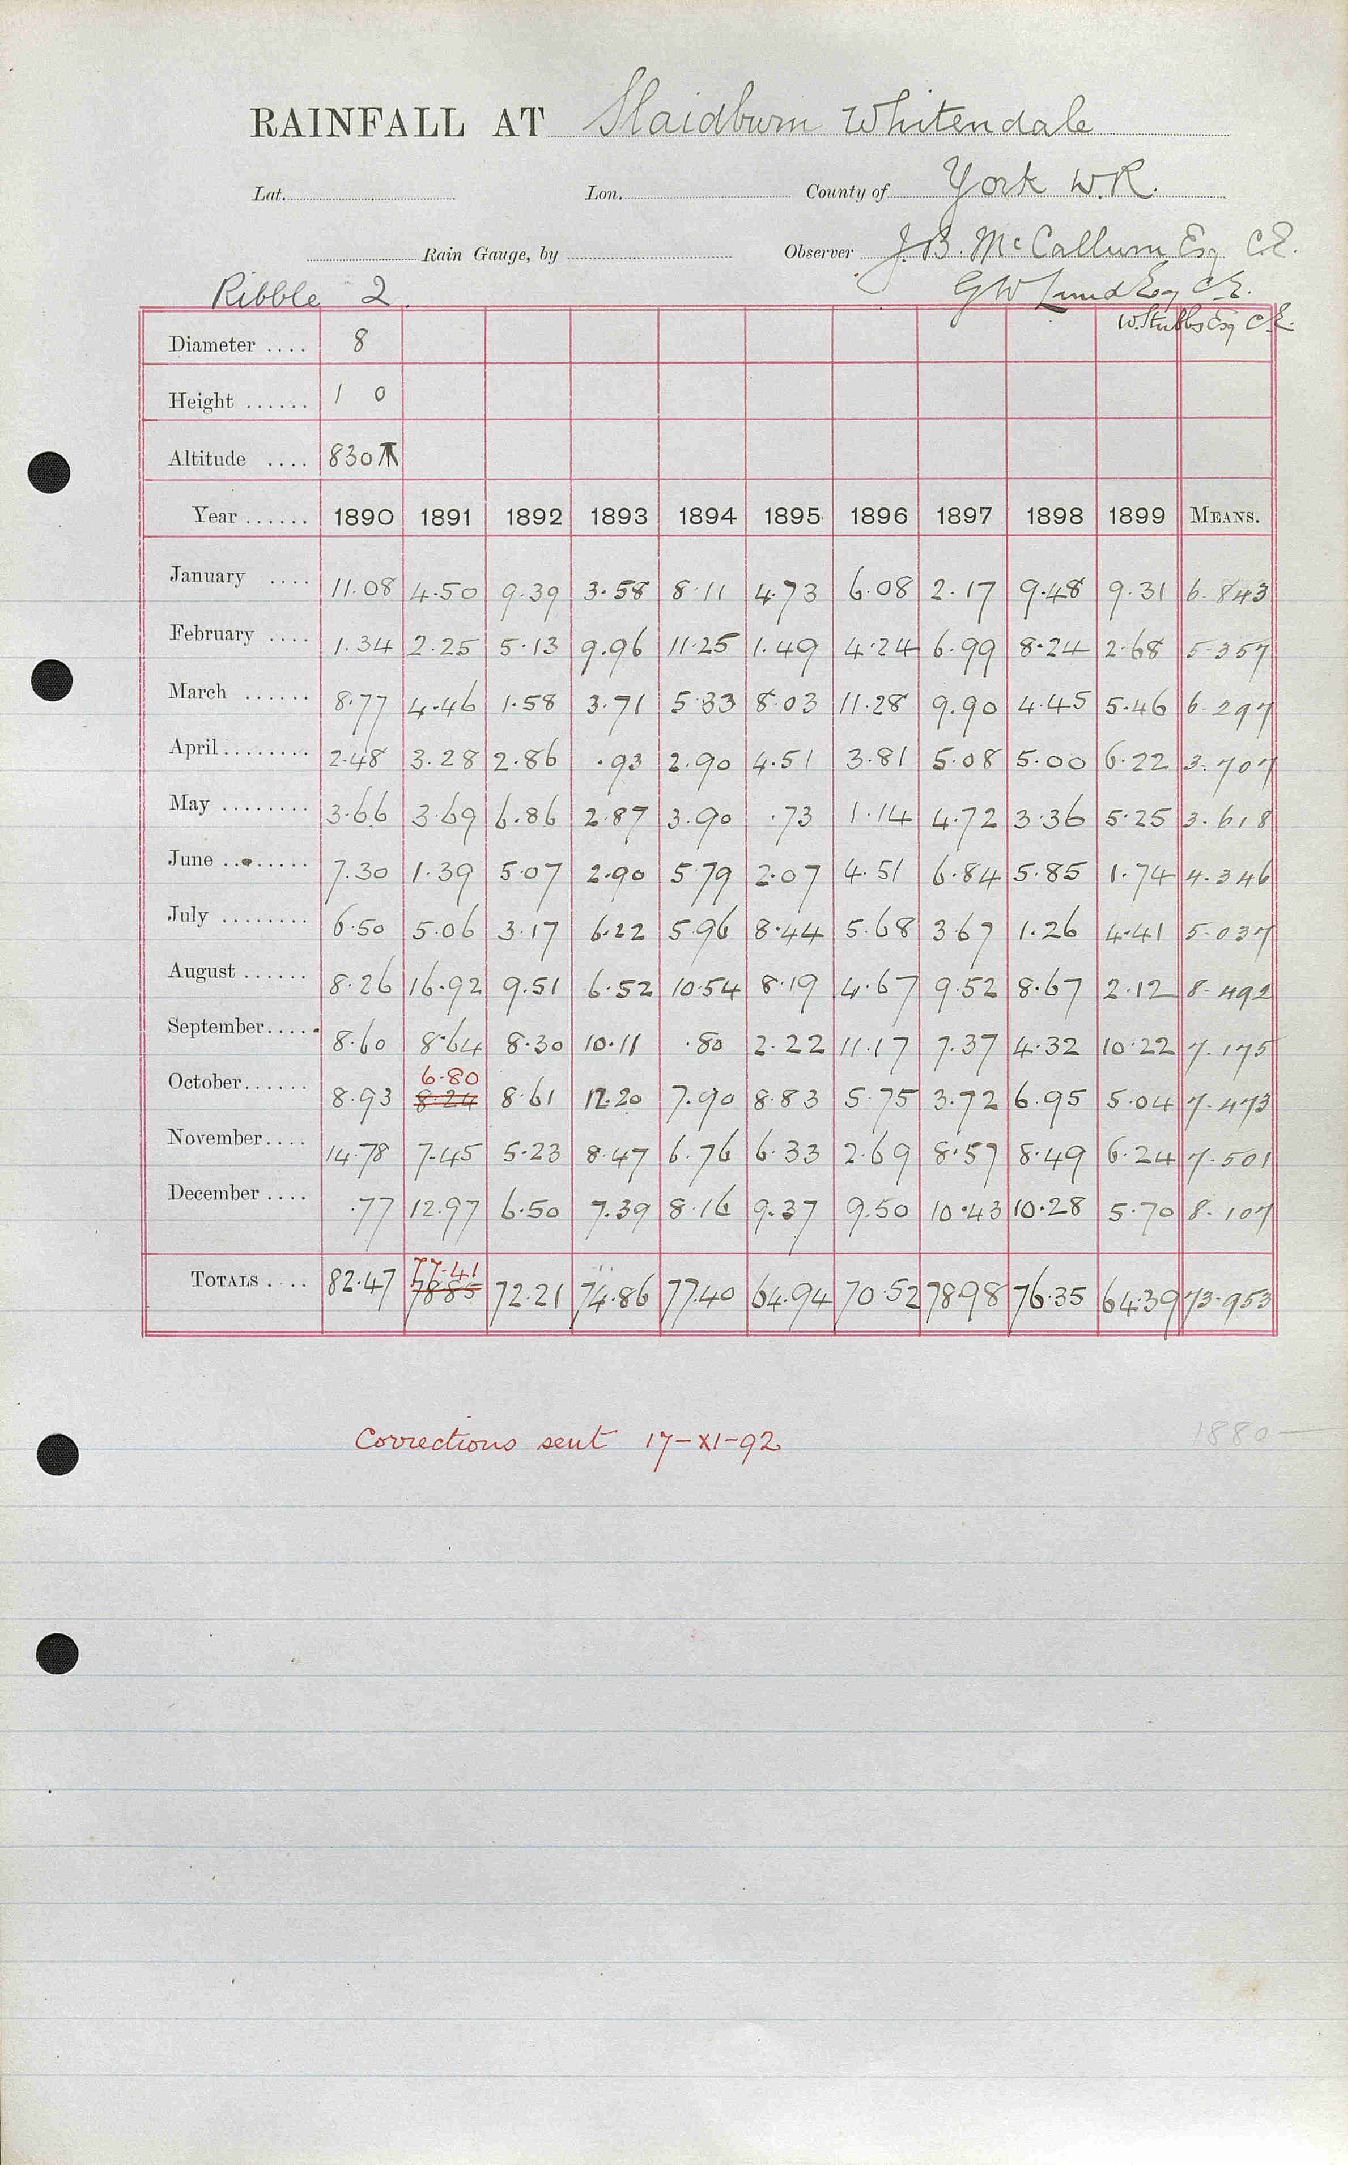 RAINFALL AT Slaidburn Whitendale
Lat. Lon. County of York W.R.
Rain Gauge, by Observer J.B. McCallum Esq C.E.
Ribble 2. G W Lund Esq C.E.
W. Stubbs Esq C.E.
Diameter .... 8
Height ...... 1 0
Altitude .... 830
Year ...... 1890 1891 1892 1893 1894 1895 1896 1897 1898 1899 MEANS.
January .... 11.08 4.50 9.39 3.58 8.11 4.73 6.08 2.17 9.48 9.31 6.843
February .... 1.34 2.25 5.13 9.96 11.25 1.49 4.24 6.99 8.24 2.68 5.357
March ...... 8.77 4.46 1.58 3.71 5.33 8.03 11.28 9.90 4.45 5.46 6.297
April ........ 2.48 3.28 2.86 .93 2.90 4.51 3.81 5.08 5.00 6.22 3.707
May ........ 3.66 3.69 6.86 2.87 3.90 .73 1.14 4.72 3.36 5.25 3.618
June ........ 7.30 1.39 5.07 2.90 5.79 2.07 4.51 6.84 5.85 1.74 4.346
July ........ 6.50 5.06 3.17 6.22 5.96 8.44 5.68 3.67 1.26 4.41 5.037
August ...... 8.26 16.92 9.51 6.52 10.54 8.19 4.67 9.52 8.67 2.12 8.492
September ..... 8.60 8.64 8.30 10.11 .80 2.22 11.17 7.37 4.32 10.22 7.175
6.80
October ...... 8.93 8.24 8.61 12.20 7.90 8.83 5.75 3.72 6.95 5.04 7.473
November .... 14.78 7.45 5.23 8.47 6.76 6.33 2.69 8.57 8.49 6.24 7.501
December .... .77 12.97 6.50 7.39 8.16 9.37 9.50 10.43 10.28 5.70 8.107
77.41
TOTALS .... 82.47 78.85 72.21 74.86 77.40 64.94 70.52 78.98 76.35 64.39 73.953
Corrections sent 17-XI-92
1880—